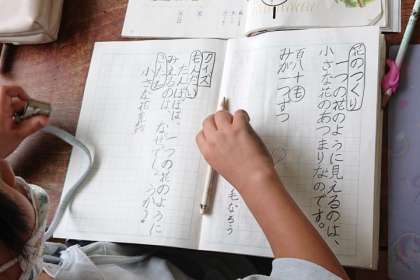 花のつくり
一つの花のように見えるのは、
小さな花のあつまりなのです。
百八十も
みが一つずつ
毛になろう
クイズ
もんだい
たんぽぽは、一つの花のように
みえるのは、なぜでしょうか?
こたえ
小さな花